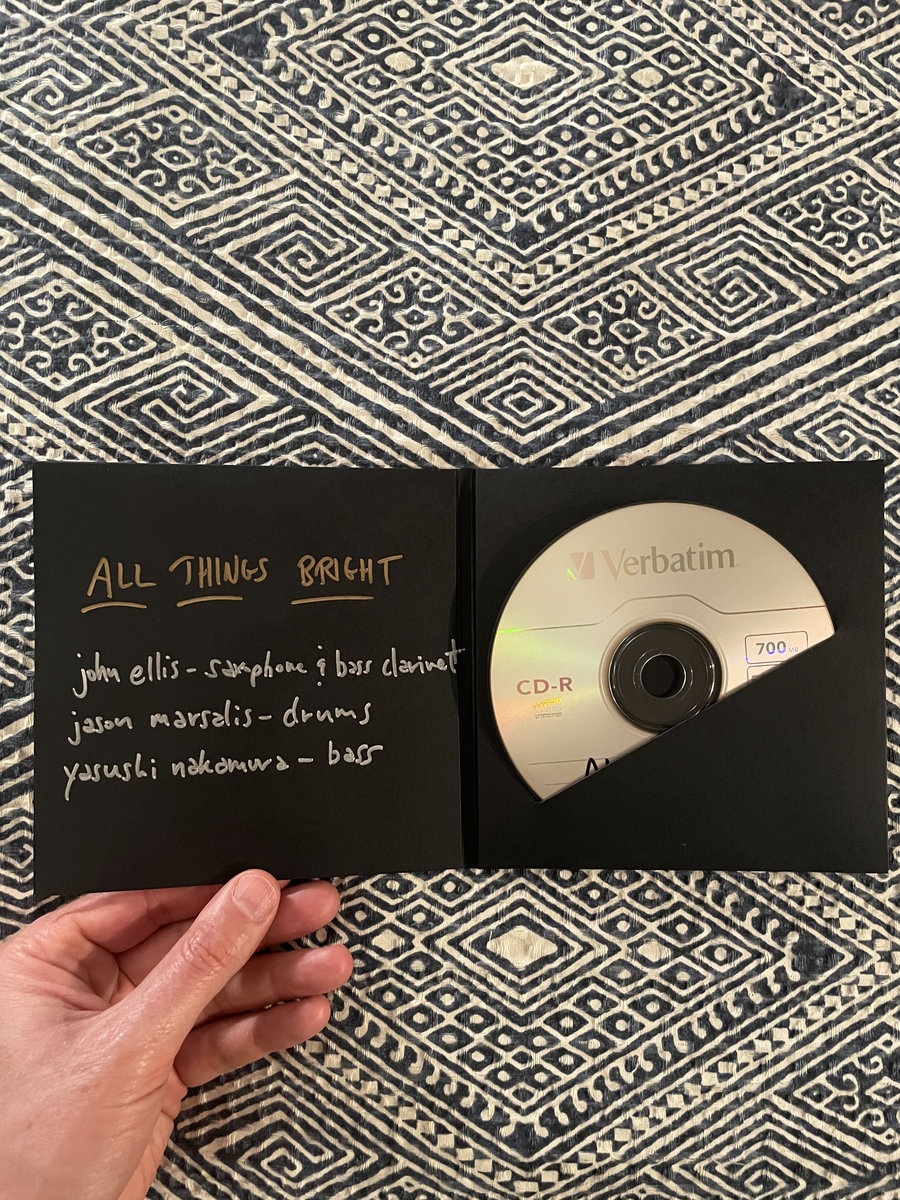 ALL THINGS BRIGHT
john ellis - saxophone & bass clarinet
jason marsalis - drums
yasushi nakamura - bass
Verbatim
700 MB
CD-R